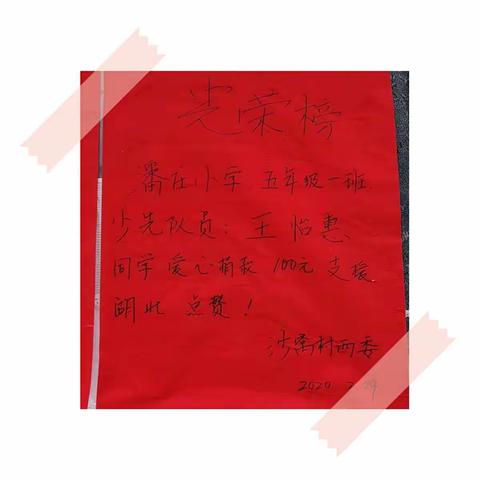 光荣榜
番庄小学 五年级一班
少先队员：王怡惠
同学爱心捐款100元支援
湖北 点赞！
沙窝村两委
2020.2.29